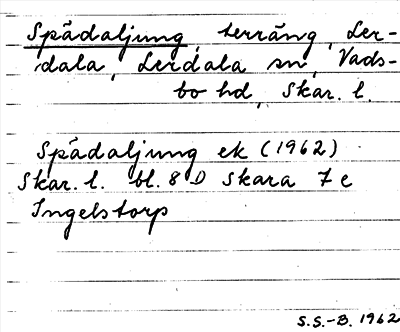 Spådaljung, terräng, Ler-
dala, Lerdala sn, Vads-
bo hd, Skar. l.
Spådaljung ek (1962)
Skar. l. bl. 8 D Skara 7 e
Ingelstorp
S.S.-B. 1962